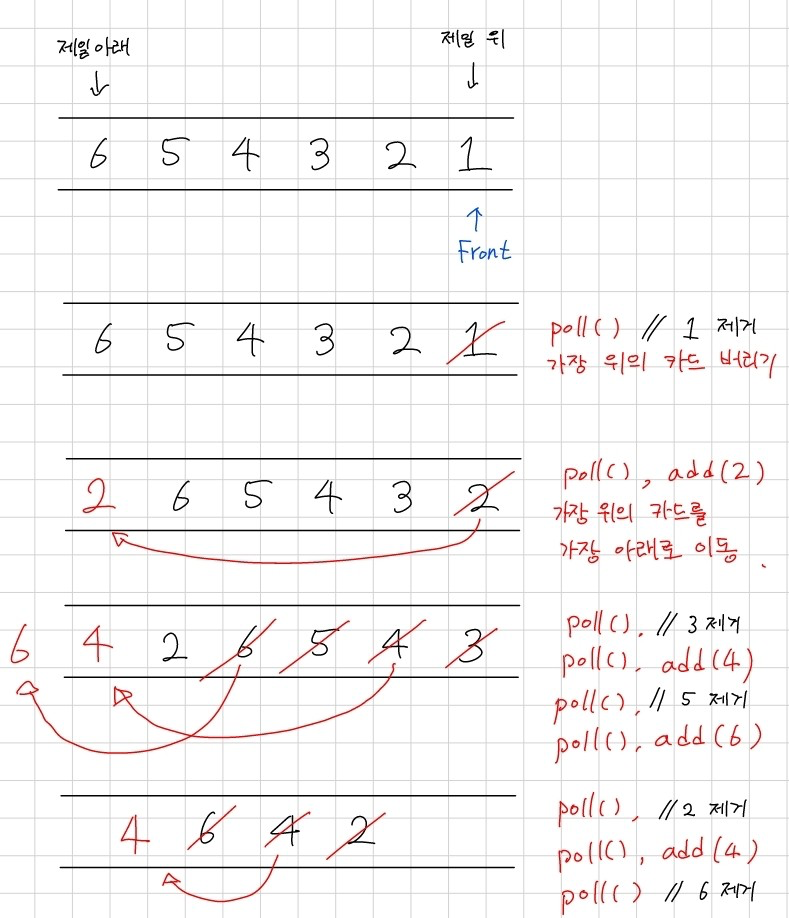 제일 아래 제일 위
6 5 4 3 2 1
Front
6 5 4 3 2 1
poll() // 1 제거
가장 위의 카드 버리기
2 6 5 4 3 2
poll(), add(2)
가장 위의 카드를
가장 아래로 이동.
6 4 2 6 5 4 3
poll(), // 3 제거
poll(), add(4)
poll(), // 5 제거
poll(), add(6)
4 6 4 2
poll(), // 2 제거
poll(), add(4)
poll() // 6 제거